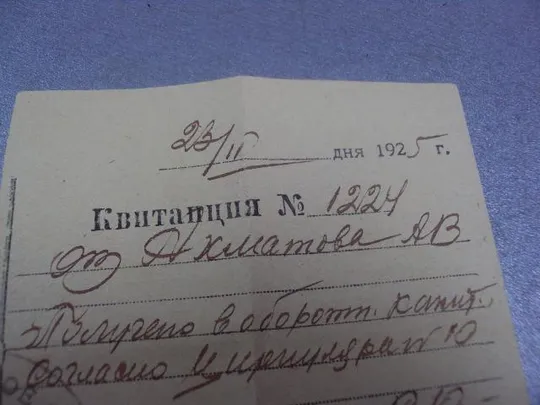 23/II дня 1925 г.
Квитанция № 1224
от Ахматова АВ
Получено в оборотн. капит.
Согласно Циркуляра № 10